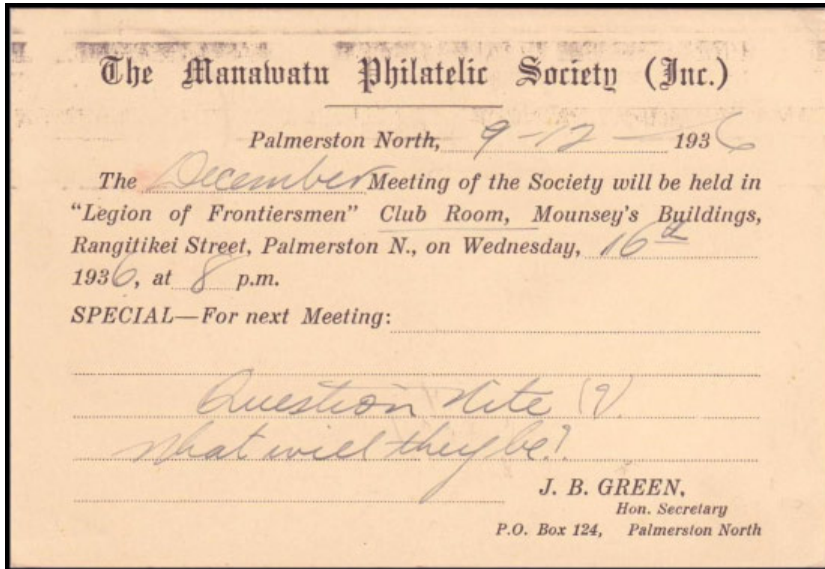 The Manawatu Philatelic Society (Inc.)
Palmerston North, 9-12-1936
The December Meeting of the Society will be held in
"Legion of Frontiersmen" Club Room, Mounsey's Buildings,
Rangitikei Street, Palmerston N., on Wednesday, 16th
1936, at 8 p.m.
SPECIAL—For next Meeting:
Question Nite (?)
What will they be?
J. B. GREEN,
Hon. Secretary
P.O. Box 124, Palmerston North